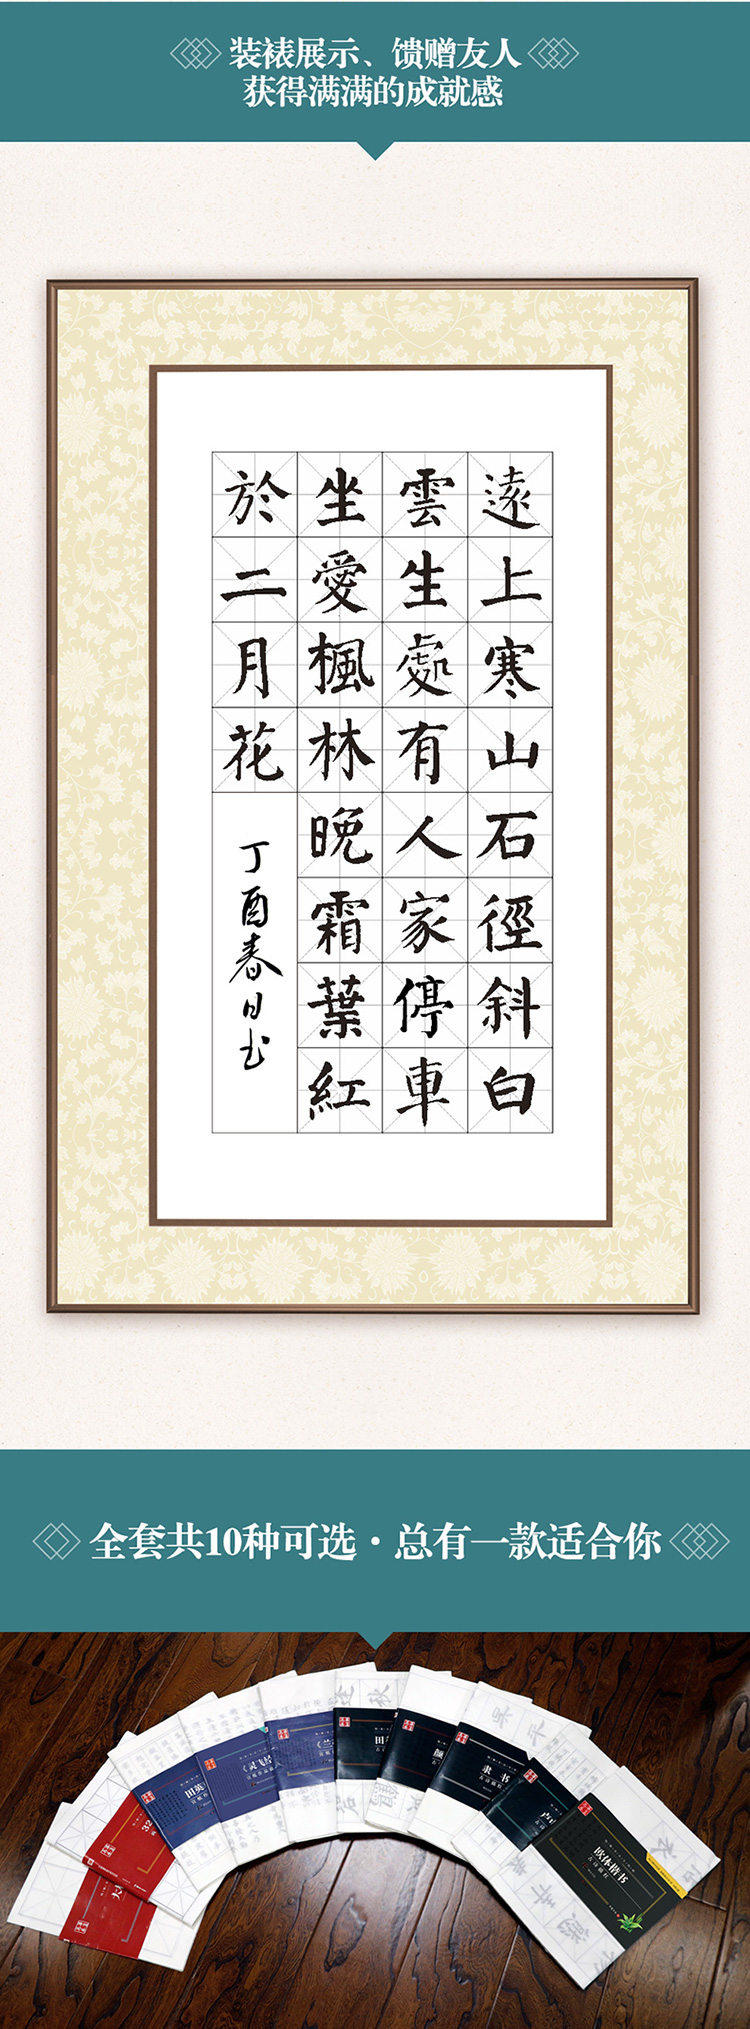 装裱展示、馈赠友人
获得满满的成就感
遠上寒山石徑斜白
雲生處有人家停車
坐愛楓林晚霜葉紅
於二月花
丁酉春日书
全套共10种可选·总有一款适合你
田英
《灵飞经
《兰
田
颜
隶书
卢
欧体楷书
古诗描红